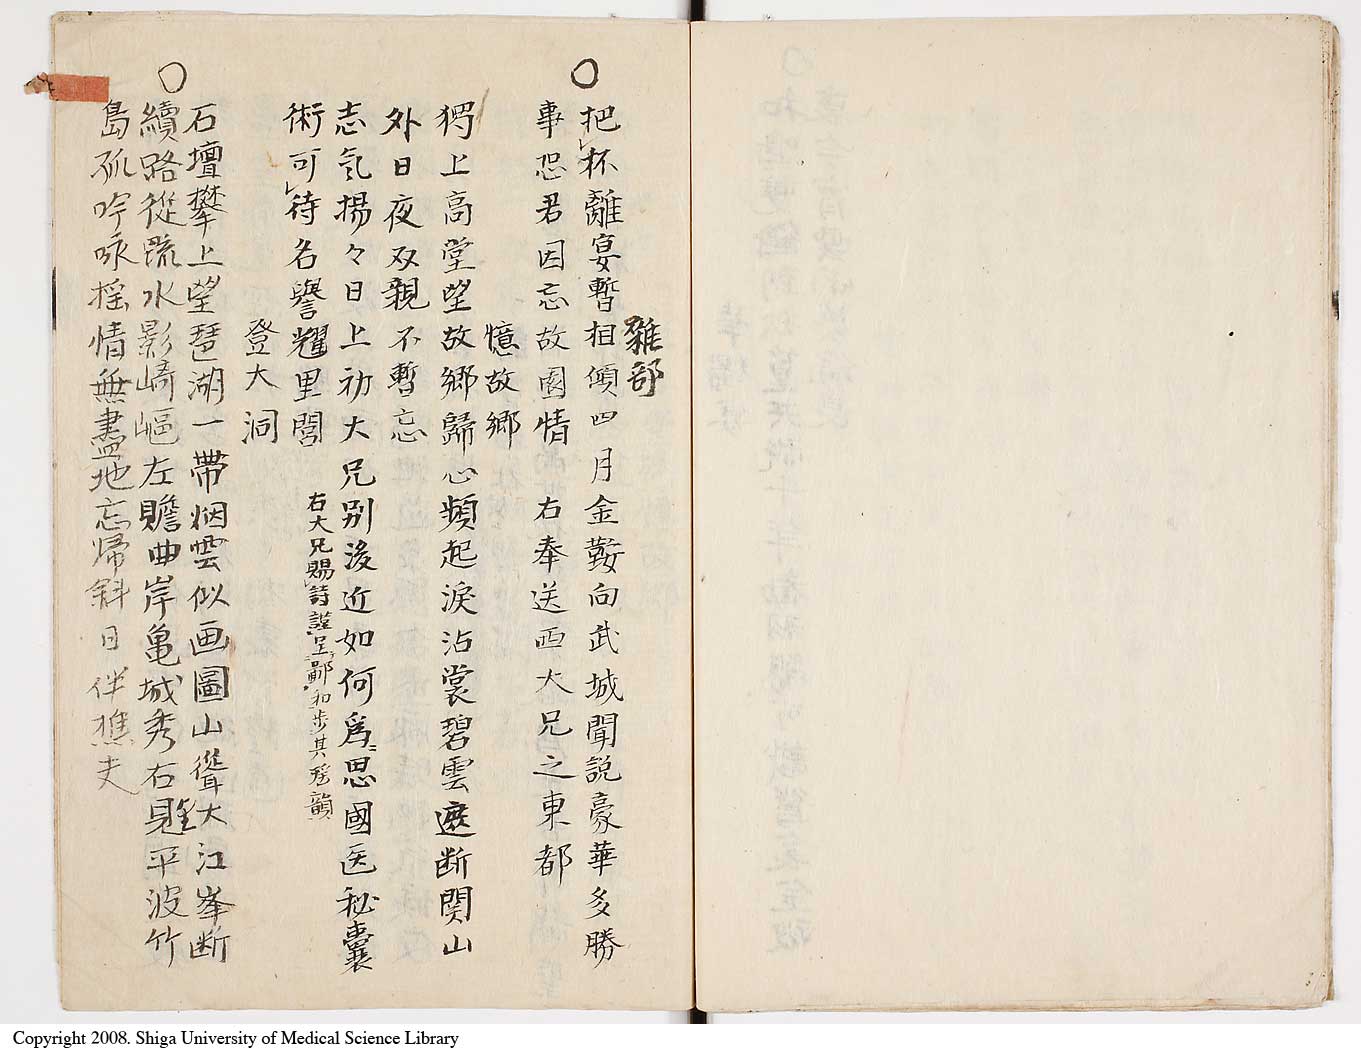 雜部
○
把杯離宴暫相傾四月金鞍向武城聞説豪華多勝
事恐君因忘故園情　右奉送西大兄之東都
憶故鄉
獨上高堂望故鄉歸心頻起淚沾裳碧雲遮断関山
外日夜双親不暫忘
志気揚々日上初大兄別後近如何為思國医秘囊
術可待名譽耀里閭
右大兄賜詩謹呈鄙和步其瑤韻
登大洞
○
石壇攀上望琶湖一帶烟雲似画圖山聳大江峯断
續路從疏水影崎嶇左瞻曲岸亀城秀右見平波竹
島孤吟咏搖情無盡地忘帰斜日伴樵夫
Copyright 2008. Shiga University of Medical Science Library